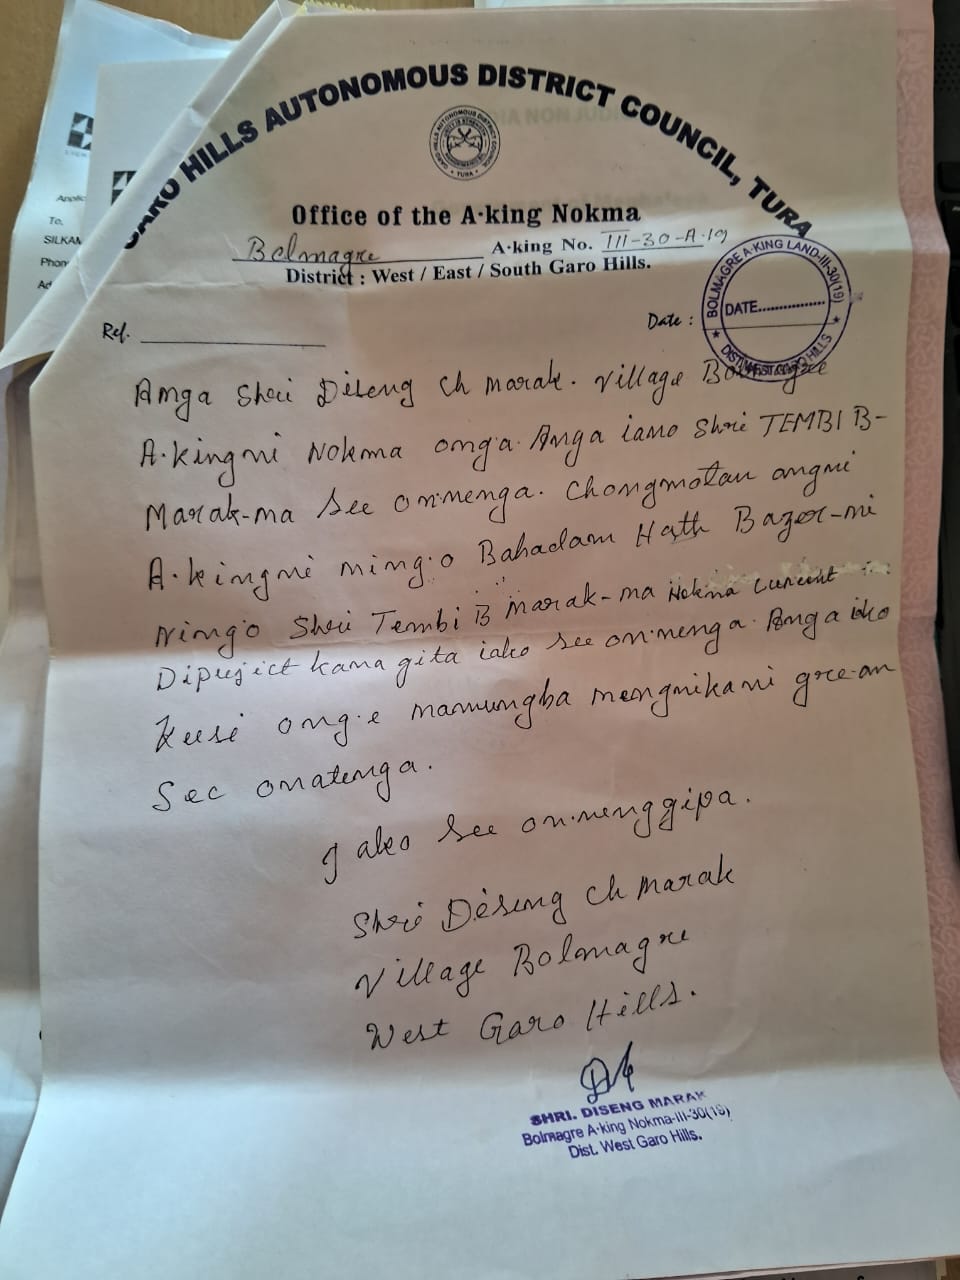 GARO HILLS AUTONOMOUS DISTRICT COUNCIL, TURA
GARO HILLS AUTONOMOUS DISTRICT COUNCIL
TURA
Office of the A·king Nokma
Bolmagre A·king No. III-30-A·19
District : West / East / South Garo Hills.
BOLMAGRE A·KING LAND-III-30(19)
DATE
DIST. WEST GARO HILLS
Ref.
Date :
Anga Shri Diseng Ch Marak. Village Bolmagre
A·kingni Nokma onga. Anga iano Shri TEMBI B-
Marak-ma See on·menga. Chongmotan angni
A·kingni ming·o Bahadam Hath Bazar-ni
Ning·o Shri Tembi B Marak-ma Nokma
kana gita iako see on·menga. Anga iako
Kusi ong·e mamungba mengnikani gre-an
Sec onatenga.
Iako See on·menggipa.
Shri Diseng Ch Marak
Village Bolmagre
West Garo Hills.
SHRI. DISENG MARAK
Bolmagre A·king Nokma-III-30(19)
Dist. West Garo Hills.
To,
SILKAM
Phon